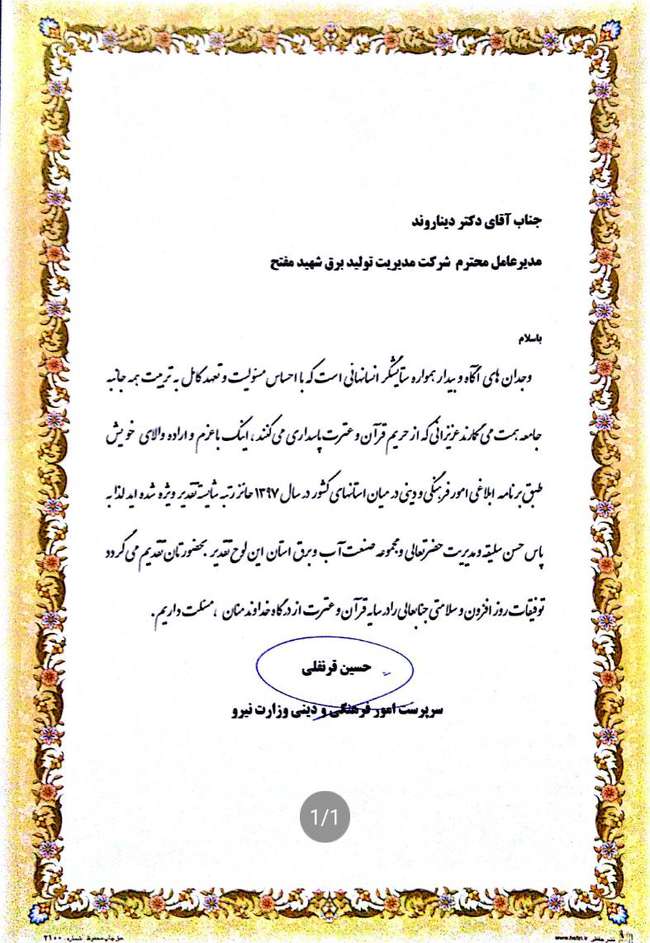 جناب آقای دکتر دیناروند
مدیرعامل محترم شرکت مدیریت تولید برق شهید مفتح
باسلام
وجدان های آگاه و بیدار همواره ستایشگر انسانهائی است که با احساس مسئولیت و تعهد کامل به تربیت همه جانبه
جامعه همت می گمارند عزیزانی که از حریم قرآن و عترت پاسداری می کنند ، اینک با عزم و اراده والای خویش
طبق برنامه ابلاغی امور فرهنگی و دینی در میان استانهای کشور در سال ۱۳۹۷ حائز رتبه شایسته تقدیر ویژه شده اید لذا به
پاس حسن سلیقه و مدیریت حضرتعالی و مجموعه صنعت آب و برق استان این لوح تقدیر بحضورتان تقدیم می گردد
توفیقات روز افزون و سلامتی جنابعالی را در سایه قرآن و عترت از درگاه خداوند منان ، مسئلت داریم .
حسین قرنفلی
سرپرست امور فرهنگی و دینی وزارت نیرو
1/1
حق چاپ محفوظ شماره ۲۱۰۰
www.hafez.ir